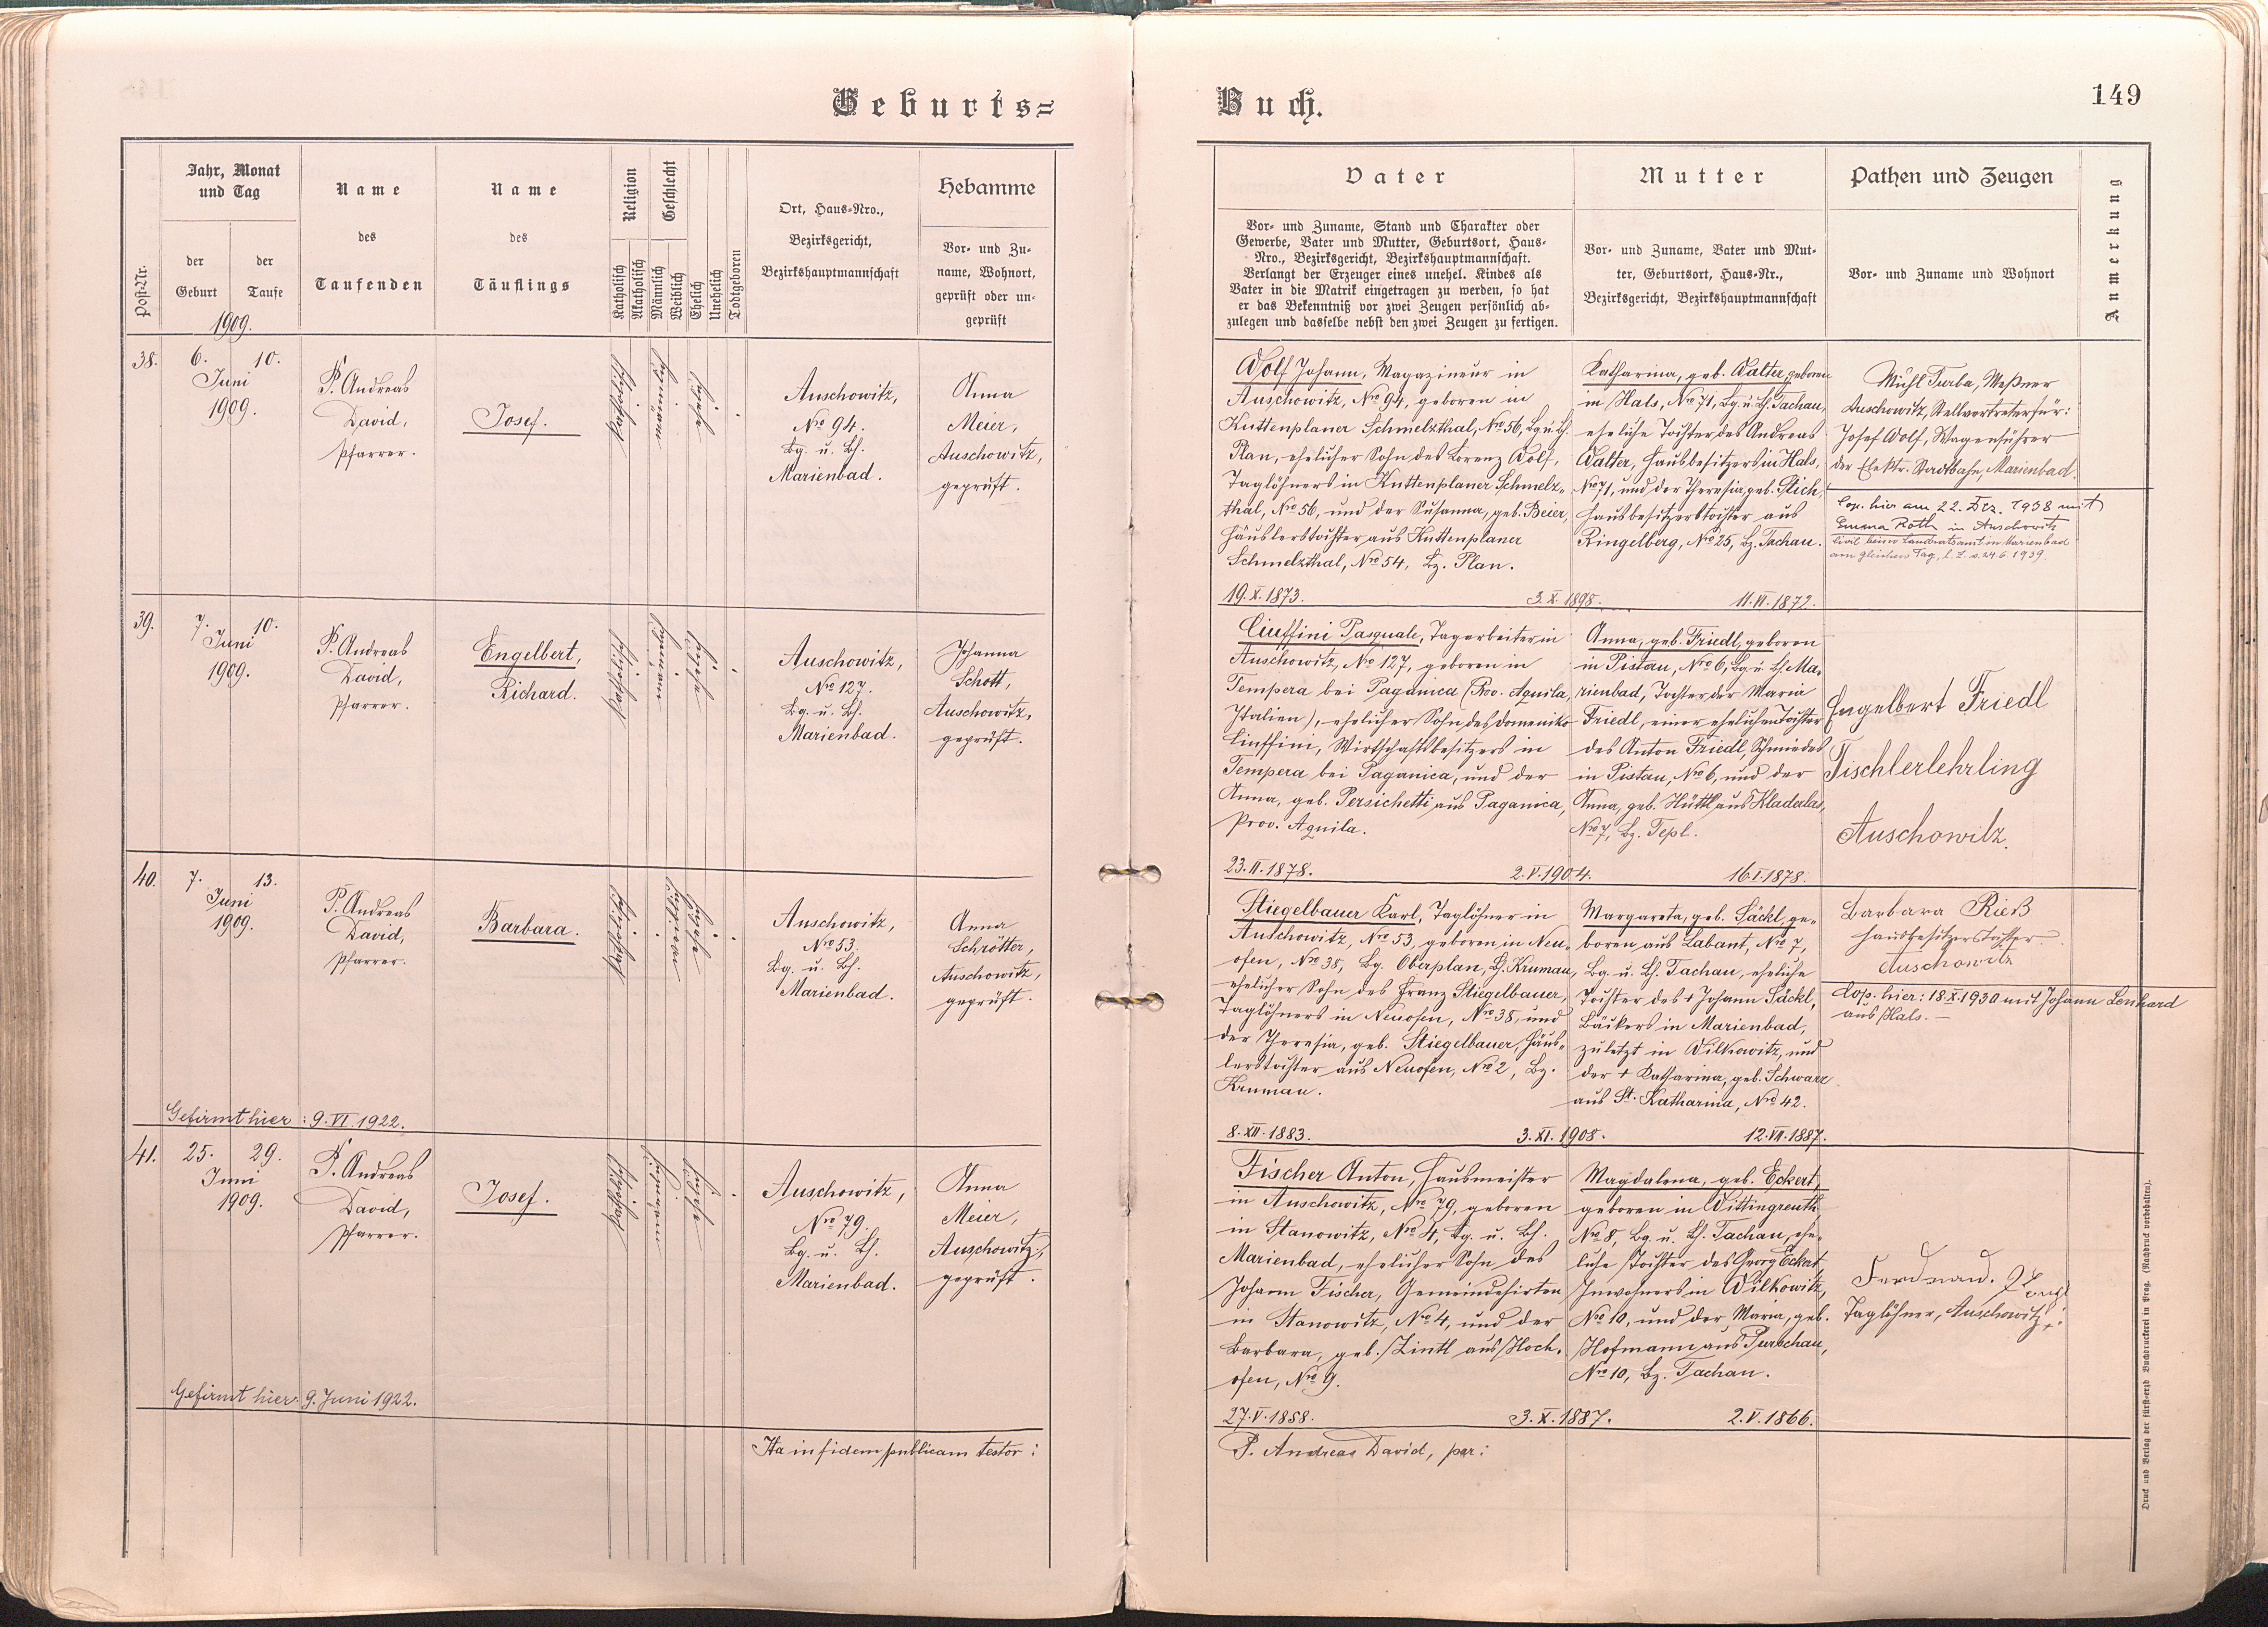 Geburts=
Buch.
149
Post-Nr.
Jahr, Monat
und Tag
der
Geburt
der
Taufe
1909.
Name
des
Taufenden
Name
des
Täuflings
Religion
Katholisch
Akatholisch
Geschlecht
Männlich
Weiblich
Ehelich
Unehelich
Todtgeboren
Ort, Haus-Nro.,
Bezirksgericht,
Bezirkshauptmannschaft
Hebamme
Vor- und Zu-
name, Wohnort,
geprüft oder un-
geprüft
Vater
Vor- und Zuname, Stand und Charakter oder
Gewerbe, Vater und Mutter, Geburtsort, Haus-
Nro., Bezirksgericht, Bezirkshauptmannschaft.
Verlangt der Erzeuger eines unehel. Kindes als
Vater in die Matrik eingetragen zu werden, so hat
er das Bekenntniß vor zwei Zeugen persönlich ab-
zulegen und dasselbe nebst den zwei Zeugen zu fertigen.
Mutter
Vor- und Zuname, Vater und Mut-
ter, Geburtsort, Haus-Nr.,
Bezirksgericht, Bezirkshauptmannschaft
Pathen und Zeugen
Vor- und Zuname und Wohnort
Anmerkung
38.
6.
10.
Juni
1909.
P. Andreas
David,
Pfarrer.
Josef.
katholisch
männlich
ehelich
Auschowitz,
Nro 94.
Bg. u. Bh.
Marienbad.
Anna
Meier,
Auschowitz,
geprüft.
Wolf Johann, Magazineur in
Auschowitz, Nro 94, geboren in
Kuttenplaner Schmelzthal, Nro 56, Bg. u. Bh.
Plan, ehelicher Sohn des Lorenz Wolf,
Taglöhners in Kuttenplaner Schmelz-
thal, Nro 56, und der Susanna, geb. Beier,
Häuslerstochter aus Kuttenplaner
Schmelzthal, Nro 54, Bz. Plan.
19.X.1873.
3.X.1898.
11.VI.1872.
Katharina, geb. Walter, geboren
in Hals, Nro 71, Bg. u. Bh. Tachau,
eheliche Tochter des Andreas
Walter, Hausbesitzers in Hals,
Nro 71, und der Theresia, geb. Stich,
Hausbesitzerstochter aus
Ringelberg, Nro 25, Bz. Tachau.
Michl Turba, Meßner
Auschowitz, Stellvertreter für:
Josef Wolf, Wagenführer
der Elektr. Stadtbahn, Marienbad.
Cop. hier am 22. Dez. 1938 mit
Emma Roth in Auschowitz
Civil beim Landratsamt in Marienbad
am gleichen Tag, l. Z. v. 24.6.1939.
39.
7.
10.
Juni
1909.
P. Andreas
David,
Pfarrer.
Engelbert,
Richard.
katholisch
männlich
ehelich
Auschowitz,
Nro 127.
Bg. u. Bh.
Marienbad.
Johanna
Schott,
Auschowitz,
geprüft.
Ciuffini Pasquale, Tagarbeiter in
Auschowitz, Nro 127, geboren in
Tempera bei Paganica (Prov. Aquila,
Italien), ehelicher Sohn des Domeniko
Ciuffini, Wirtschaftsbesitzers in
Tempera bei Paganica, und der
Anna, geb. Persichetti aus Paganica,
Prov. Aquila.
23.II.1878.
2.V.1904.
16.I.1878.
Anna, geb. Friedl, geboren
in Pistau, Nro 6, Bg. u. Bh. Ma-
rienbad, Tochter der Maria
Friedl, einer ehelichen Tochter
des Anton Friedl, Schmiedes
in Pistau, Nro 6, und der
Anna, geb. Hüttl aus Kladerlas,
Nro 7, Bz. Tepl.
Engelbert Friedl
Tischlerlehrling
Auschowitz.
40.
7.
13.
Juni
1909.
P. Andreas
David,
Pfarrer.
Barbara.
katholisch
weiblich
ehelich
Auschowitz,
Nro 53.
Bg. u. Bh.
Marienbad.
Anna
Schrötter,
Auschowitz,
geprüft.
Gefirmt hier: 9.VI.1922.
Stiegelbauer Karl, Taglöhner in
Auschowitz, Nro 53, geboren in Neu-
ofen, Nro 38, Bg. Oberplan, Bh. Krumau,
ehelicher Sohn des Franz Stiegelbauer,
Taglöhners in Neuofen, Nro 38, und
der Theresia, geb. Stiegelbauer, Häus-
lerstochter aus Neuofen, Nro 2, Bz.
Krumau.
8.XII.1883.
3.XI.1908.
12.VII.1887.
Margareta, geb. Säckl, ge-
boren aus Labant, Nro 7,
Bg. u. Bh. Tachau, eheliche
Tochter des + Johann Säckl,
Bäckers in Marienbad,
zuletzt in Wilkowitz, und
der + Katharina, geb. Schwarz
aus St. Katharina, Nro 42.
Barbara Rieß
Hausbesitzerstochter
Auschowitz
Cop. hier: 18.X.1930 mit Johann Lenhard
aus Hals.-
41.
25.
29.
Juni
1909.
P. Andreas
David,
Pfarrer.
Josef.
katholisch
männlich
ehelich
Auschowitz,
Nro 79.
Bg. u. Bh.
Marienbad.
Anna
Meier,
Auschowitz,
geprüft.
Gefirmt hier: 9. Juni 1922.
Fischer Anton, Hausmeister
in Auschowitz, Nro 79, geboren
in Stanowitz, Nro 4, Bg. u. Bh.
Marienbad, ehelicher Sohn des
Johann Fischer, Gemeindehirten
in Stanowitz, Nro 4, und der
Barbara, geb. Zintl aus Hoch-
ofen, Nro 9.
27.V.1858.
3.X.1887.
2.V.1866.
Magdalena, geb. Eckert,
geboren in Wittingreuth,
Nro 8, Bg. u. Bh. Tachau, ehe-
liche Tochter des Georg Eckert,
Inwohners in Wilkowitz,
Nro 10, und der Maria, geb.
Hofmann aus Purschau,
Nro 10, Bz. Tachau.
Ferdinand.
Taglöhner, Auschowitz
Ita in fidem publicam testor:
P. Andreas David, par:
Druck und Verlag der fürsterzb. Buchdruckerei in Prag. (Nachdruck vorbehalten).